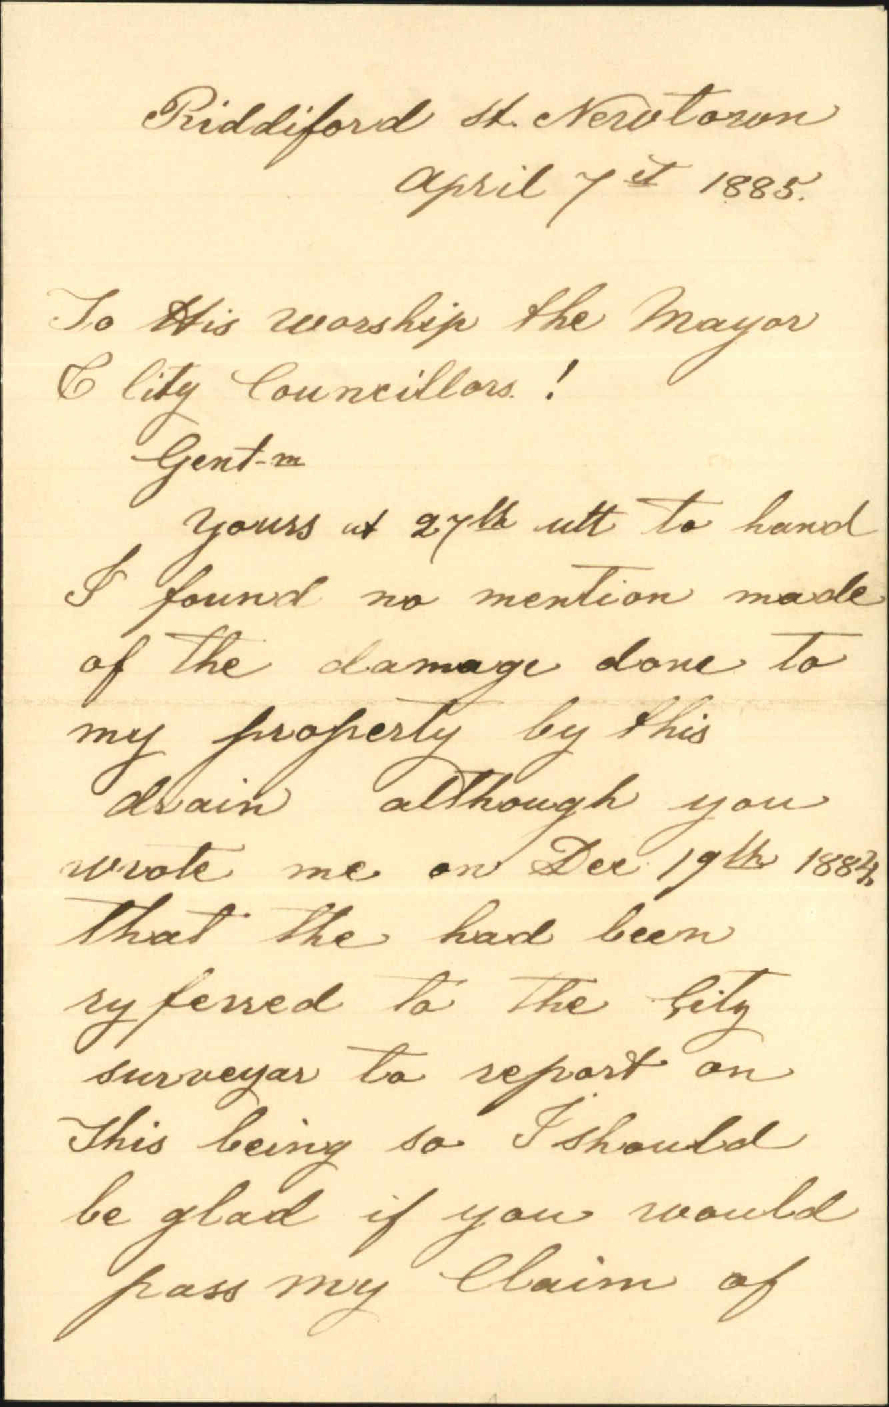 Riddiford St. Newtown
April 7st 1885.
To His worship the Mayor
& City Councillors !
Gent-m
Yours at 27th ult to hand
I found no mention made
of the damage done to
my property by this
drain although you
wrote me on Dec 19th 1884,
that the had been
ryferred to the City
surveyar to report on
This being so I should
be glad if you would
pass my Claim of